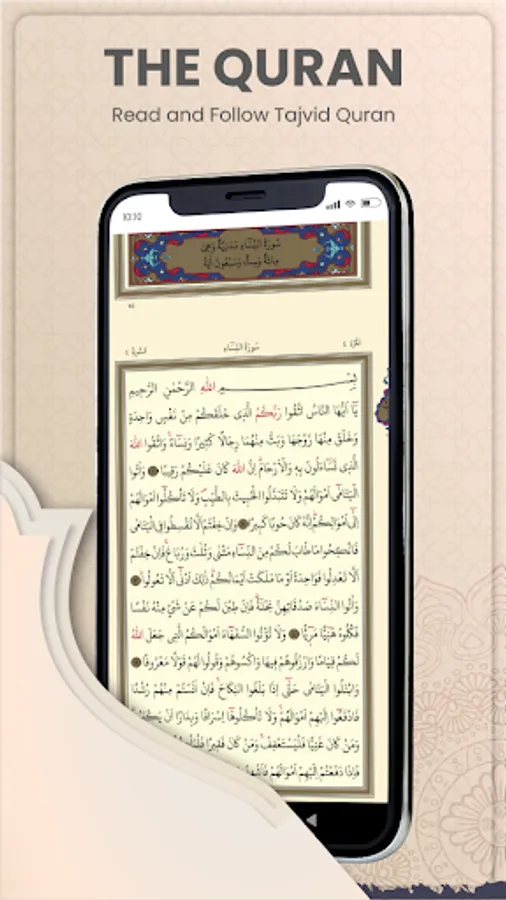 THE QURAN
Read and Follow Tajvid Quran
10:10
سُورَةُ النِّسَاءِ مَدَنِيَّةٌ وَهِيَ
مِائَةٌ وَسِتٌّ وَسَبْعُونَ اٰيَةً
سُورَةُ النِّسَاءِ
بِسْمِ اللهِ الرَّحْمٰنِ الرَّحِيمِ
يَٓا اَيُّهَا النَّاسُ اتَّقُوا رَبَّكُمُ الَّذ۪ي خَلَقَكُمْ مِنْ نَفْسٍ وَاحِدَةٍ
وَخَلَقَ مِنْهَا زَوْجَهَا وَبَثَّ مِنْهُمَا رِجَالًا كَث۪يرًا وَنِسَٓاءً وَاتَّقُوا اللهَ
الَّذ۪ي تَسَٓاءَلُونَ بِه۪ وَالْاَرْحَامَ اِنَّ اللهَ كَانَ عَلَيْكُمْ رَق۪يبًا وَاٰتُوا
الْيَتَامٰٓى اَمْوَالَهُمْ وَلَا تَتَبَدَّلُوا الْخَب۪يثَ بِالطَّيِّبِ وَلَا تَأْكُلُٓوا اَمْوَالَهُمْ
اِلٰٓى اَمْوَالِكُمْ اِنَّهُ كَانَ حُوبًا كَب۪يرًا وَاِنْ خِفْتُمْ اَلَّا تُقْسِطُوا فِي الْيَتَامٰى
فَانْكِحُوا مَا طَابَ لَكُمْ مِنَ النِّسَٓاءِ مَثْنٰى وَثُلٰثَ وَرُبَاعَ فَاِنْ خِفْتُمْ
اَلَّا تَعْدِلُوا فَوَاحِدَةً اَوْ مَا مَلَكَتْ اَيْمَانُكُمْ ذٰلِكَ اَدْنٰٓى اَلَّا تَعُولُوا
وَاٰتُوا النِّسَٓاءَ صَدُقَاتِهِنَّ نِحْلَةً فَاِنْ طِبْنَ لَكُمْ عَنْ شَيْءٍ مِنْهُ نَفْسًا
فَكُلُوهُ هَن۪ٓيـًٔا مَر۪ٓيـًٔا وَلَا تُؤْتُوا السُّفَهَٓاءَ اَمْوَالَكُمُ الَّت۪ي جَعَلَ اللهُ
لَكُمْ قِيَامًا وَارْزُقُوهُمْ ف۪يهَا وَاكْسُوهُمْ وَقُولُوا لَهُمْ قَوْلًا مَعْرُوفًا
وَابْتَلُوا الْيَتَامٰى حَتّٰٓى اِذَا بَلَغُوا النِّكَاحَ فَاِنْ اٰنَسْتُمْ مِنْهُمْ رُشْدًا
فَادْفَعُٓوا اِلَيْهِمْ اَمْوَالَهُمْ وَلَا تَأْكُلُوهَٓا اِسْرَافًا وَبِدَارًا اَنْ يَكْبَرُوا
وَمَنْ كَانَ غَنِيًّا فَلْيَسْتَعْفِفْ وَمَنْ كَانَ فَق۪يرًا
فَاِذَا دَفَعْتُمْ اِلَيْهِمْ اَمْوَالَهُمْ